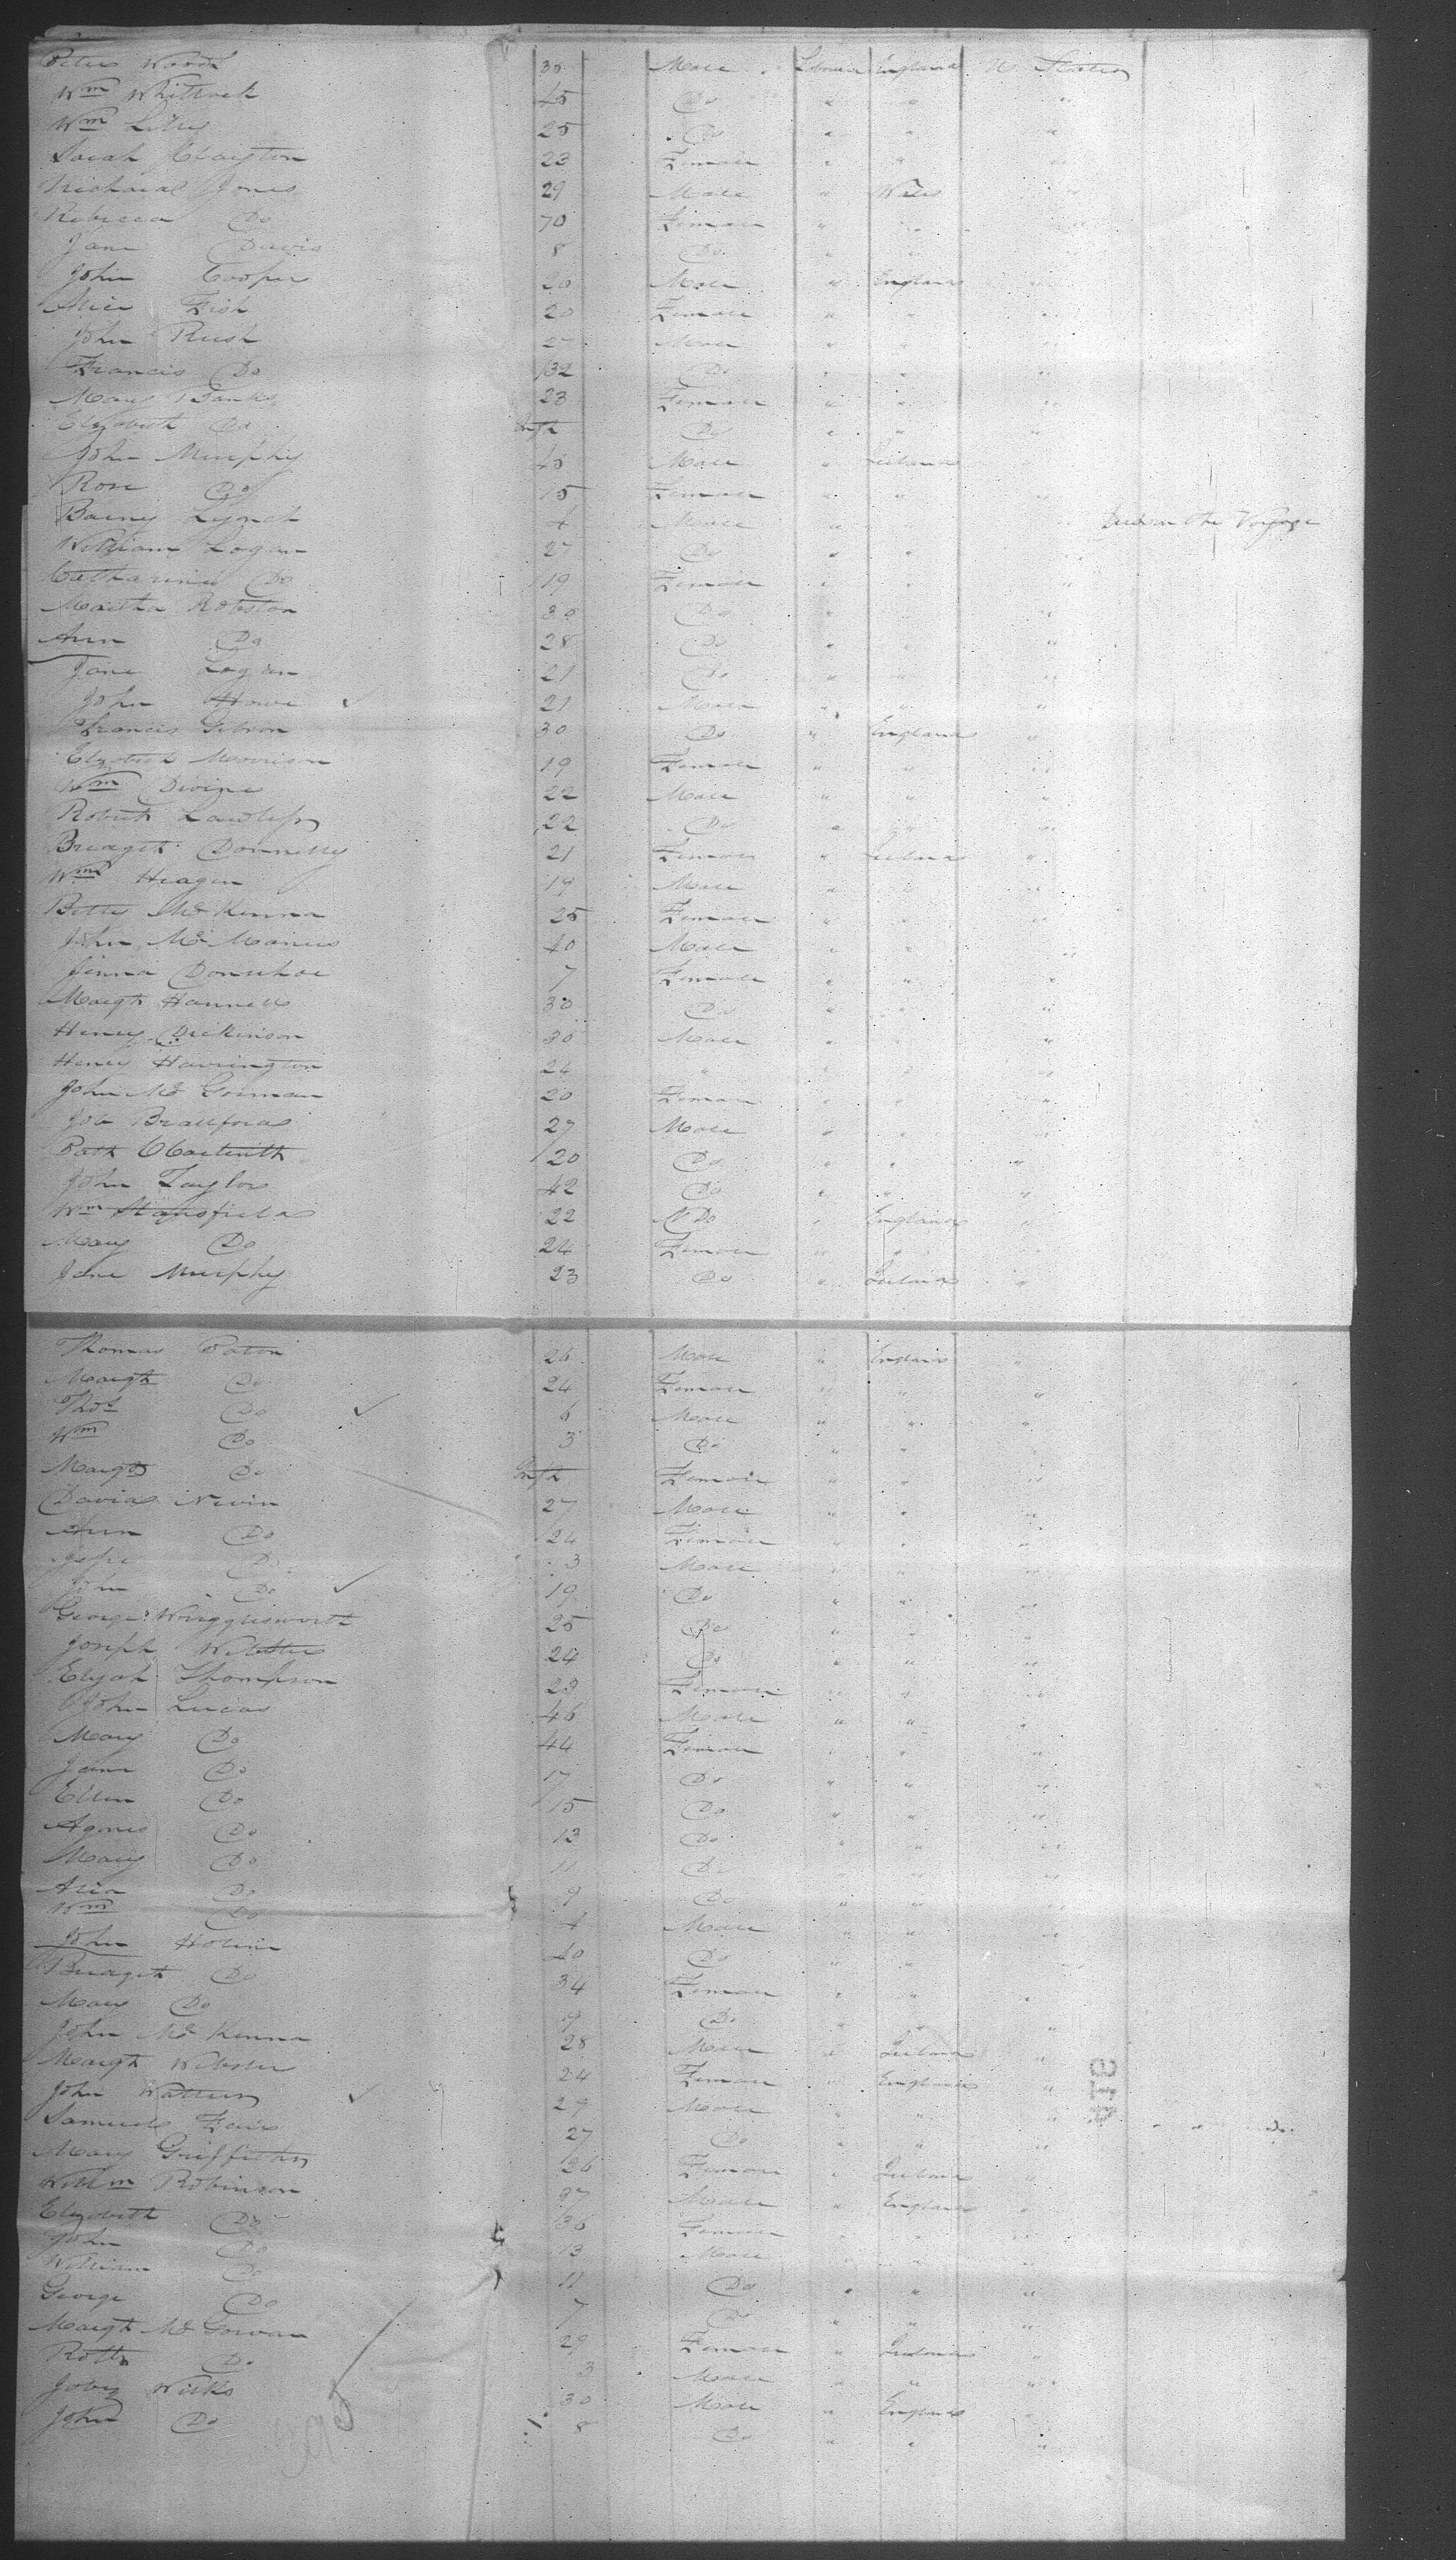 Peter Woods 30 Male England U States
Wm Whittock 45 Do " " "
Wm Lilley 25 Do " " "
Sarah Clayton 23 Female " " "
Richard Jones 29 Male " Wales "
Rebecca Do 70 Female " " "
Jane Davis 8 Do " " "
John Cooper 20 Male " England "
Alice Fish 20 Female " " "
John Rush 27 Male " " "
Francis Do 32 Do " " "
Mary Banks 23 Female " " "
Elizabeth Do Inft Do " " "
John Murphy 45 Male " Ireland "
Rose Do 15 Female " " "
Barny Lynch 4 Male " Died on the Voyage
William Logan 27 Do " " "
Catharine Do 19 Female " " "
Martha Robston 30 Do " " "
Ann Do 28 Do " " "
Jane Logan 21 Do " " "
John Howe 21 Male " " "
Francis Gibson 30 Do " England "
Elizabeth Morrison 19 Female " " "
Wm Divine 22 Male " " "
Robert Lawless 22 Do " " "
Bridget Donnelly 21 Female " Ireland "
Wm Heagen 19 Male " " "
Betty McKenna 25 Female " " "
John McManus 40 Male " " "
Jenna Donuhoe 7 Female " " "
Margt Hannell 30 Do " " "
Henry Dickinson 30 Male " " "
Henry Harrington 24 " " " "
John McGorman 20 Female " " "
Job Bradford 27 Male " " "
Patk 20 Do " " "
John Taylor 42 Do " " "
Wm Stansfield 22 Do " England "
Mary Do 24 Female " " "
Jane Murphy 23 Do " Ireland "
Thomas Paton 26 Male " England "
Margt Do 24 Female " " "
Thos Do 6 Male " " "
Wm Do 3 Do " " "
Margt Do Inft Female " " "
David Nevin 27 Male " " "
Ann Do 24 Female " " "
Jesse Do 3 Male " " "
John Do 19 Do " " "
George Wrigglesworth 25 Do " " "
Joseph Webster 24 Do " " "
Elijah Thompson 23 Female " " "
John Lucas 46 Male " " "
Mary Do 44 Female " " "
Jane Do 17 Do " " "
Ellen Do 15 Do " " "
Agnes Do 13 Do " " "
Mary Do 11 Do " " "
Alice Do 9 Do " " "
Wm Do 4 Male " " "
John Holme 40 Do " " "
Bridget Do 34 Female " " "
Mary Do 9 Do " " "
John McKenna 28 Male " Ireland "
Margt Webster 24 Female " England "
John Watters 29 Male " " "
Samuel Fair 27 Do " " "
Mary Griffiths 26 Female " Ireland "
Willm Robinson 37 Male " England "
Elizabeth Do 36 Female " " "
John Do 13 Male " " "
William Do 11 Do " " "
George Do 7 Do " " "
Margt McGowan 29 Female " Ireland "
Do 3 Male " " "
Wilks 30 Male " England "
John Do 8 Do " " "